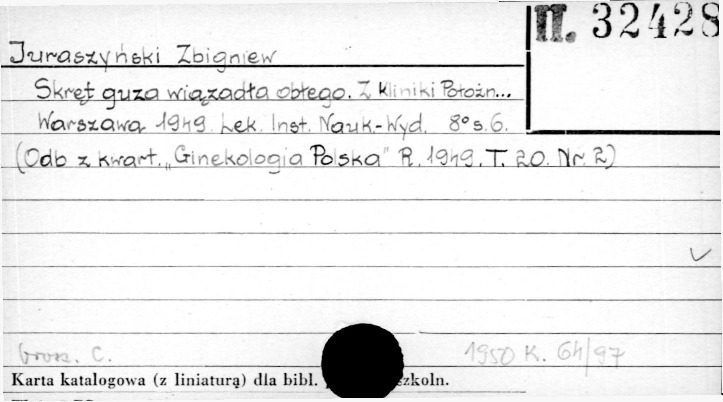 II. 32428
Juraszyński Zbigniew
Skręt guza wiązadła obłego. Z Kliniki Położn...
Warszawa 1949. Lek. Inst. Nauk.-Wyd. 8° s. 6.
(Odb z kwart. „Ginekologia Polska" R. 1949. T. 20. Nr 2)
brosz. C. 1950 K. 64/97
Karta katalogowa (z liniaturą) dla bibl. szkoln.